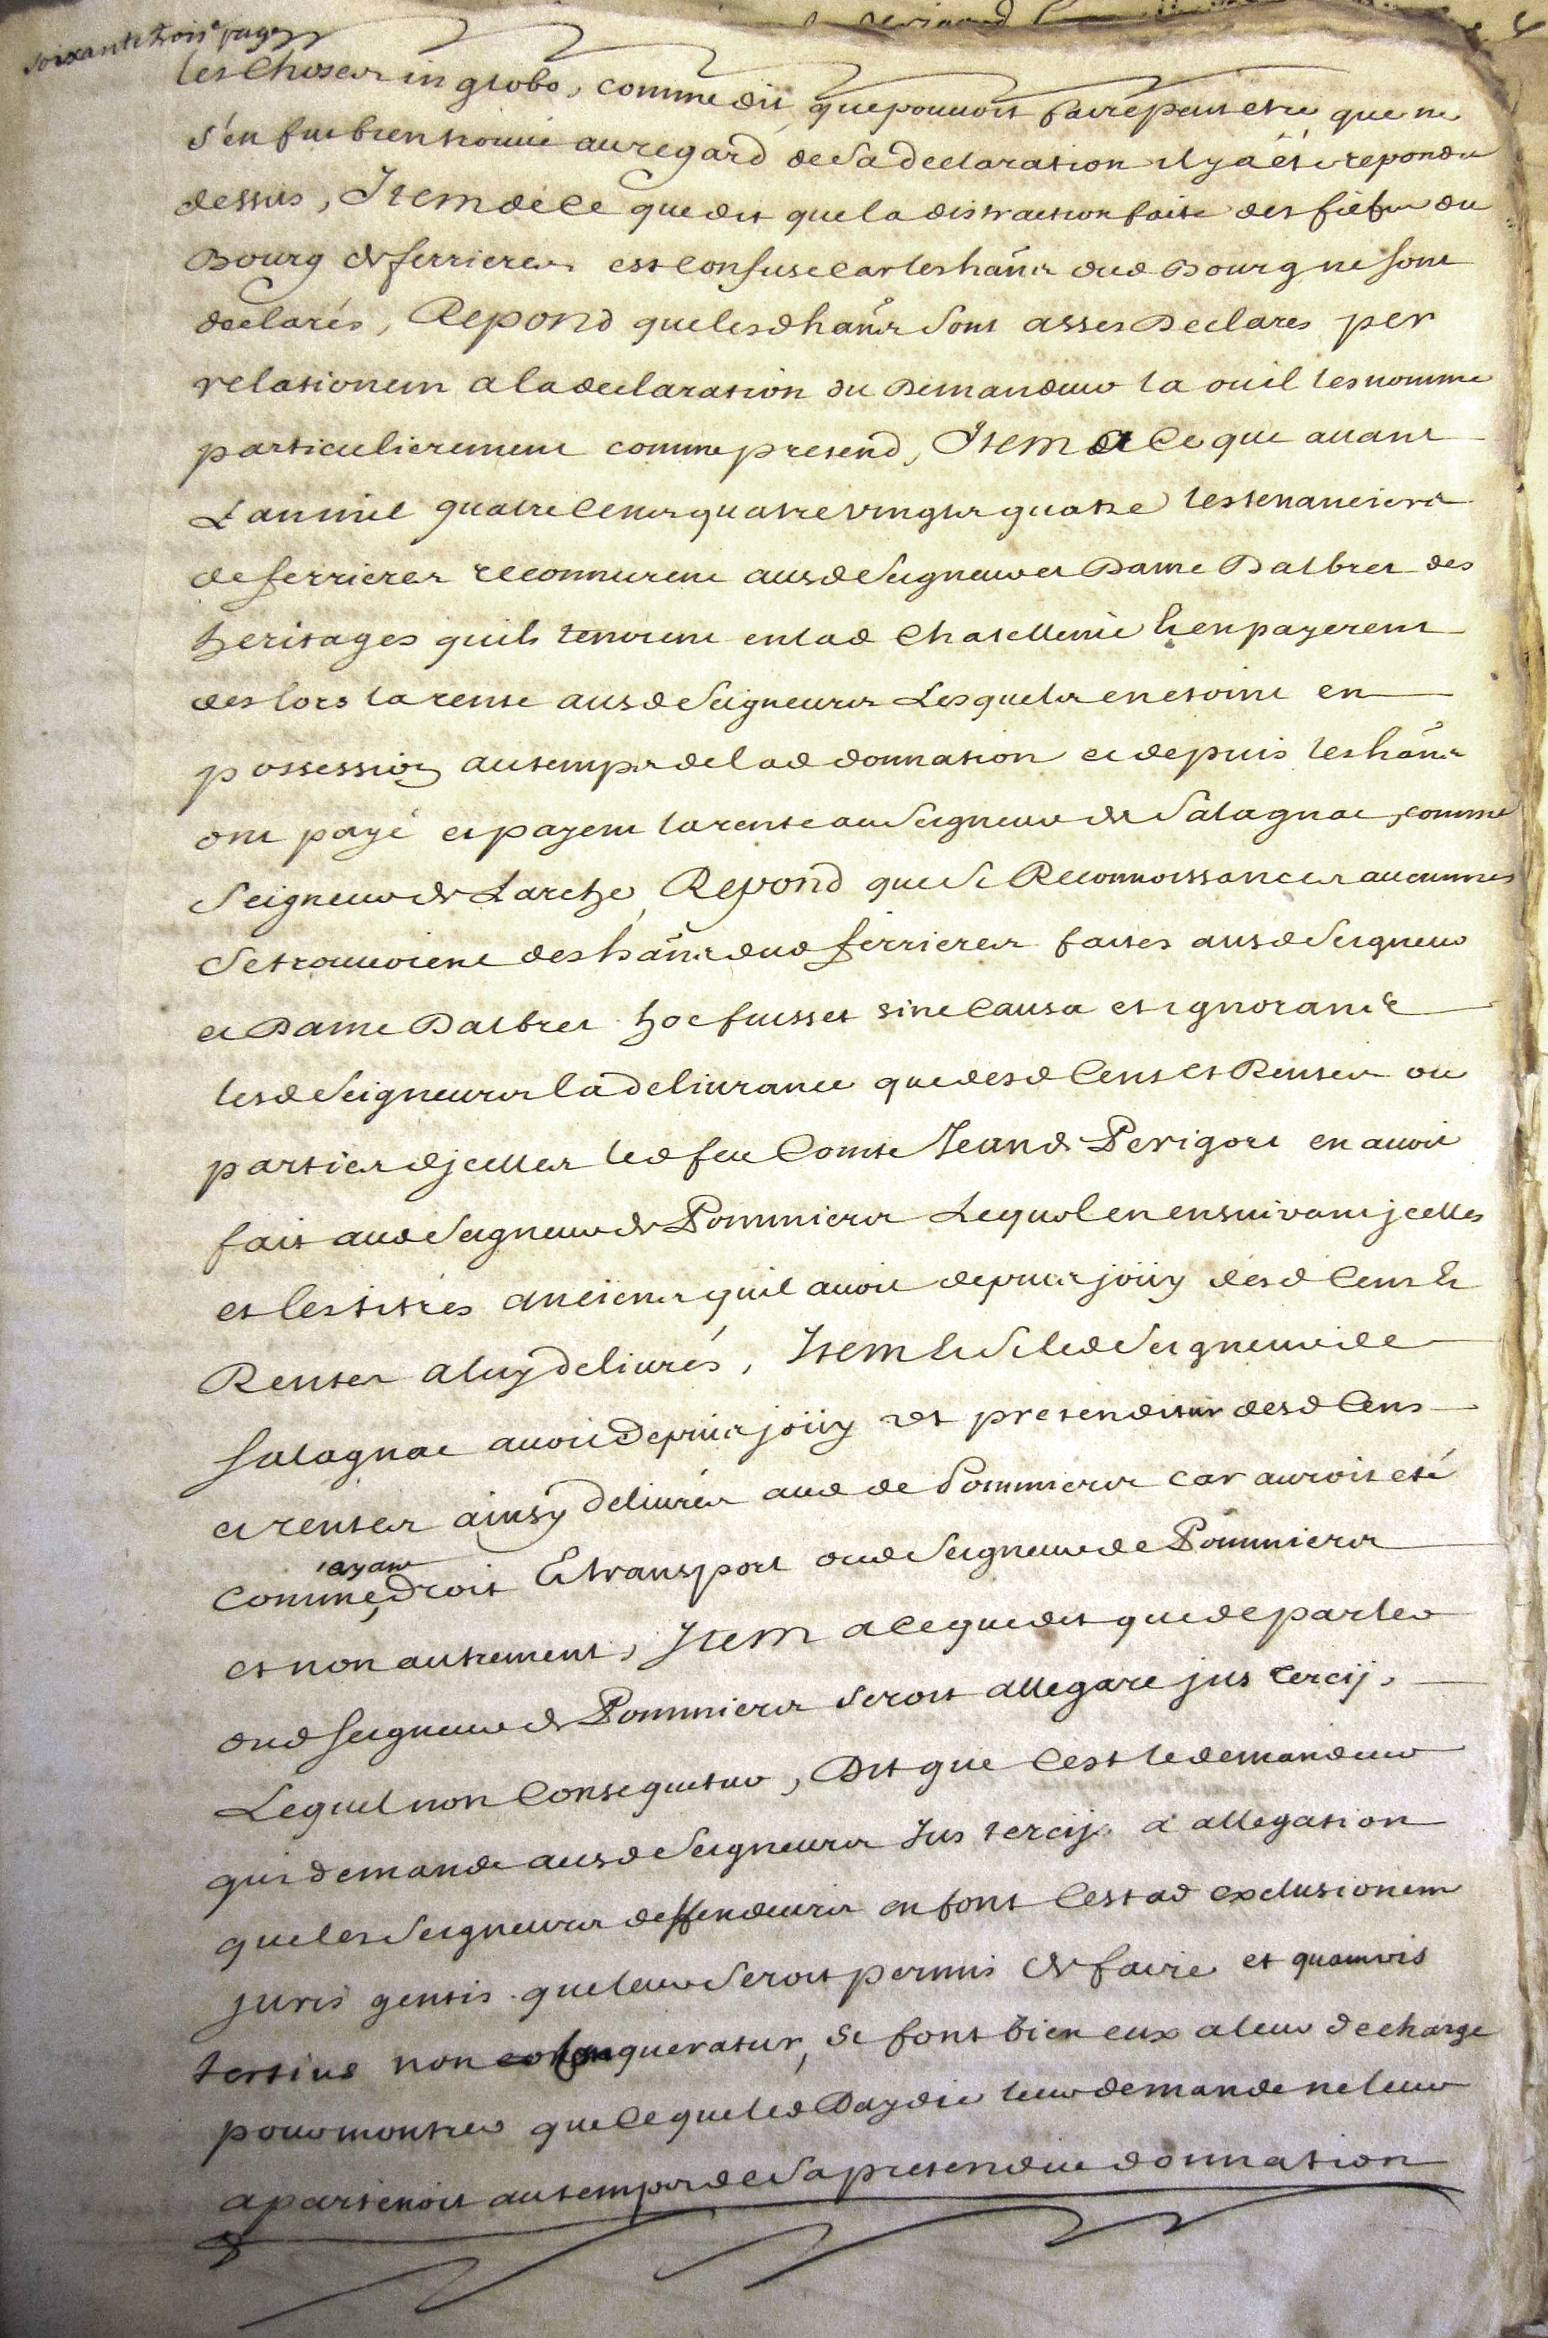 soixante trois.e page
les choses in globo, comme dit que pouvoit faire peut etre que ne
s'en fut bien trouvé au regard de sa declaration il y a eté repondu
dessus, Item de ce que dit que la distraction faite des fiefs du
Bourg de ferrieres est confuse car les hãns dud Bourg ne sont
declarés, Repond que lesd hãns sont asses Declares per
relationem a la declaration du Demandeur la ou il les nomme
particulierement comme pretend, Item a ce que avant
L'an mil quatre cens quatre vingts quatre les tenanciers
de ferrieres reconnurent ausd Seigneur et Dame Dalbret des
heritages quils tenoient en lad Chatellenie & en payerent
des lors la rente ausd Seigneurs Lesquels en etoint en
possession au temps de lad donnation et depuis les hãns
ont payé et payent la rente au Seigneur de Salagnac, comme
Seigneur de Larche, Repond que si Reconnoissances aucunnes
se trouvoient des hãns dud ferrieres faites ausd Seigneur
et Dame Dalbret hoc fuisset sine causa et ignorant
lesd Seigneurs la delivrance que desd Cens et Rentes ou
parties d'jcelles led feu Comte Jean de Perigort en avoit
fait aud Seigneur de Pommiers Lequel en ensuivant jcelles
et les titres anciens quil avoit depuis joüy desd Cens &
Rentes a luy delivrés, Item & si led Seigneur de
Salagnac avoit depuis joüy et pretendisur desd Cens
et rentes ainsy delivrés aud de Pommiers car auroit eté
comme ayant droit & transport dud Seigneur de Pommiers
et non autrement, Item a ce que dit que de parler
dud Seigneur de Pommiers seroit allegare jus tercij,
Lequel non consequetur, Dit que c'est le demandeur
qui demande ausd Seigneurs Jus tercij a allegation
que les Seigneurs deffendeurs en font c'est ad exclusionem
juris gentis que leur seroit permis de faire et quamvis
tertius non conqueratur, se font bien eux a leur decharge
pour montrer que ce que led Daydie leur demande ne leur
apartenoit au temps de sa pretendue donnation